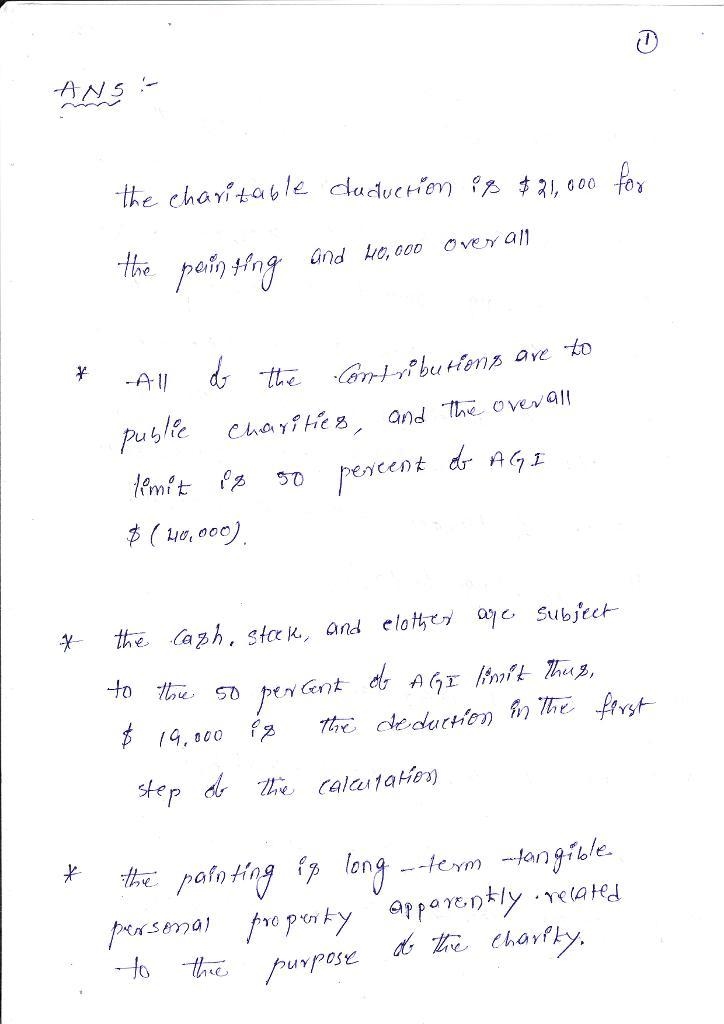 1
ANS :-
the charitable deduction is $21,000 for
the painting and 40,000 over all
* All of the Contributions are to
public charities, and the over all
limit is 50 percent of AGI
$ (40,000).
* the cash, stock, and clother are subject
to the 50 percent of AGI limit Thus,
$ 19,000 is the deduction in the first
step of the calculation
* the painting is long-term tangible
personal property apparently related
to the purpose of the charity.